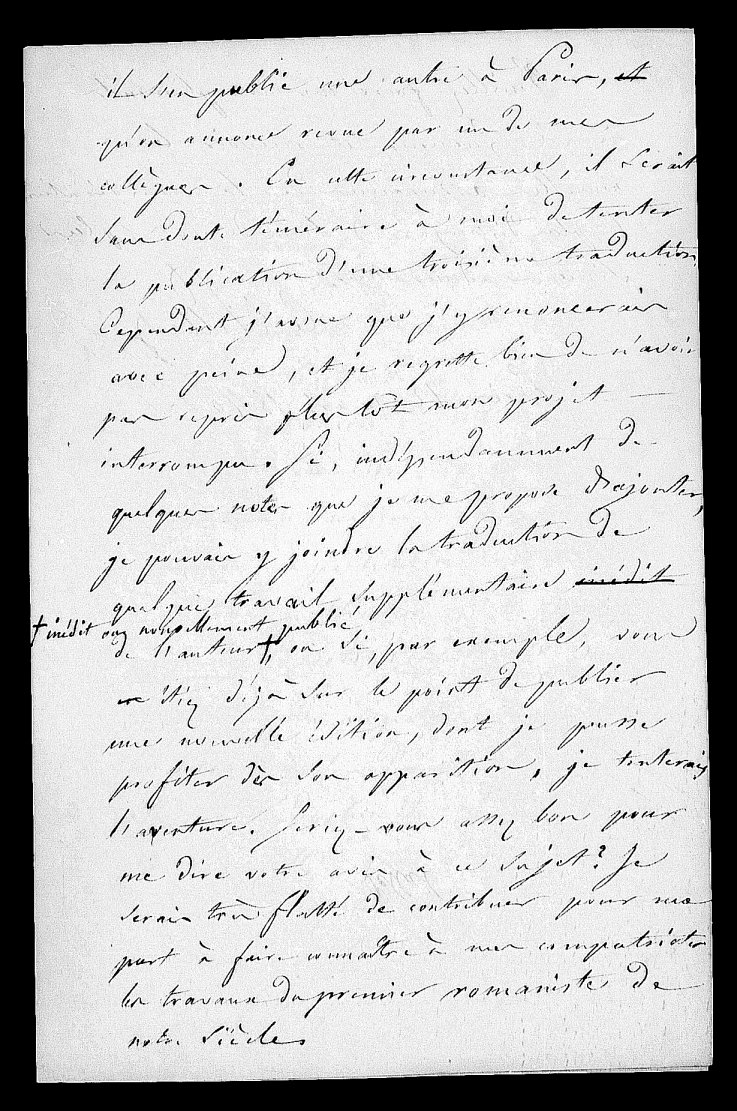 il s'en publie une autre à Paris, et
qu'on annonce revue par un de mes
collègues. En cette circonstance, il serait
sans doute téméraire à moi de tenter
la publication d'une troisième traduction.
Cependant j'avoue que j'y renoncerais
avec peine, et je regrette bien de n'avoir
pas repris plus tôt mon projet
interrompu. Si, indépendamment de
quelques notes que je me propose d'ajouter,
je pouvais y joindre la traduction de
quelque travail supplémentaire inédit
† inédit ou nouvellement publié
de l'auteur †, ou si, par exemple, vous
étiez déjà sur le point de publier
une nouvelle édition, dont je pusse
profiter dès son apparition, je tenterais
l'aventure. Seriez-vous assez bon pour
me dire votre avis à ce sujet? Je
serais très flatté de contribuer pour ma
part à faire connaître à mes compatriotes
les travaux du premier romaniste de
notre siècle.